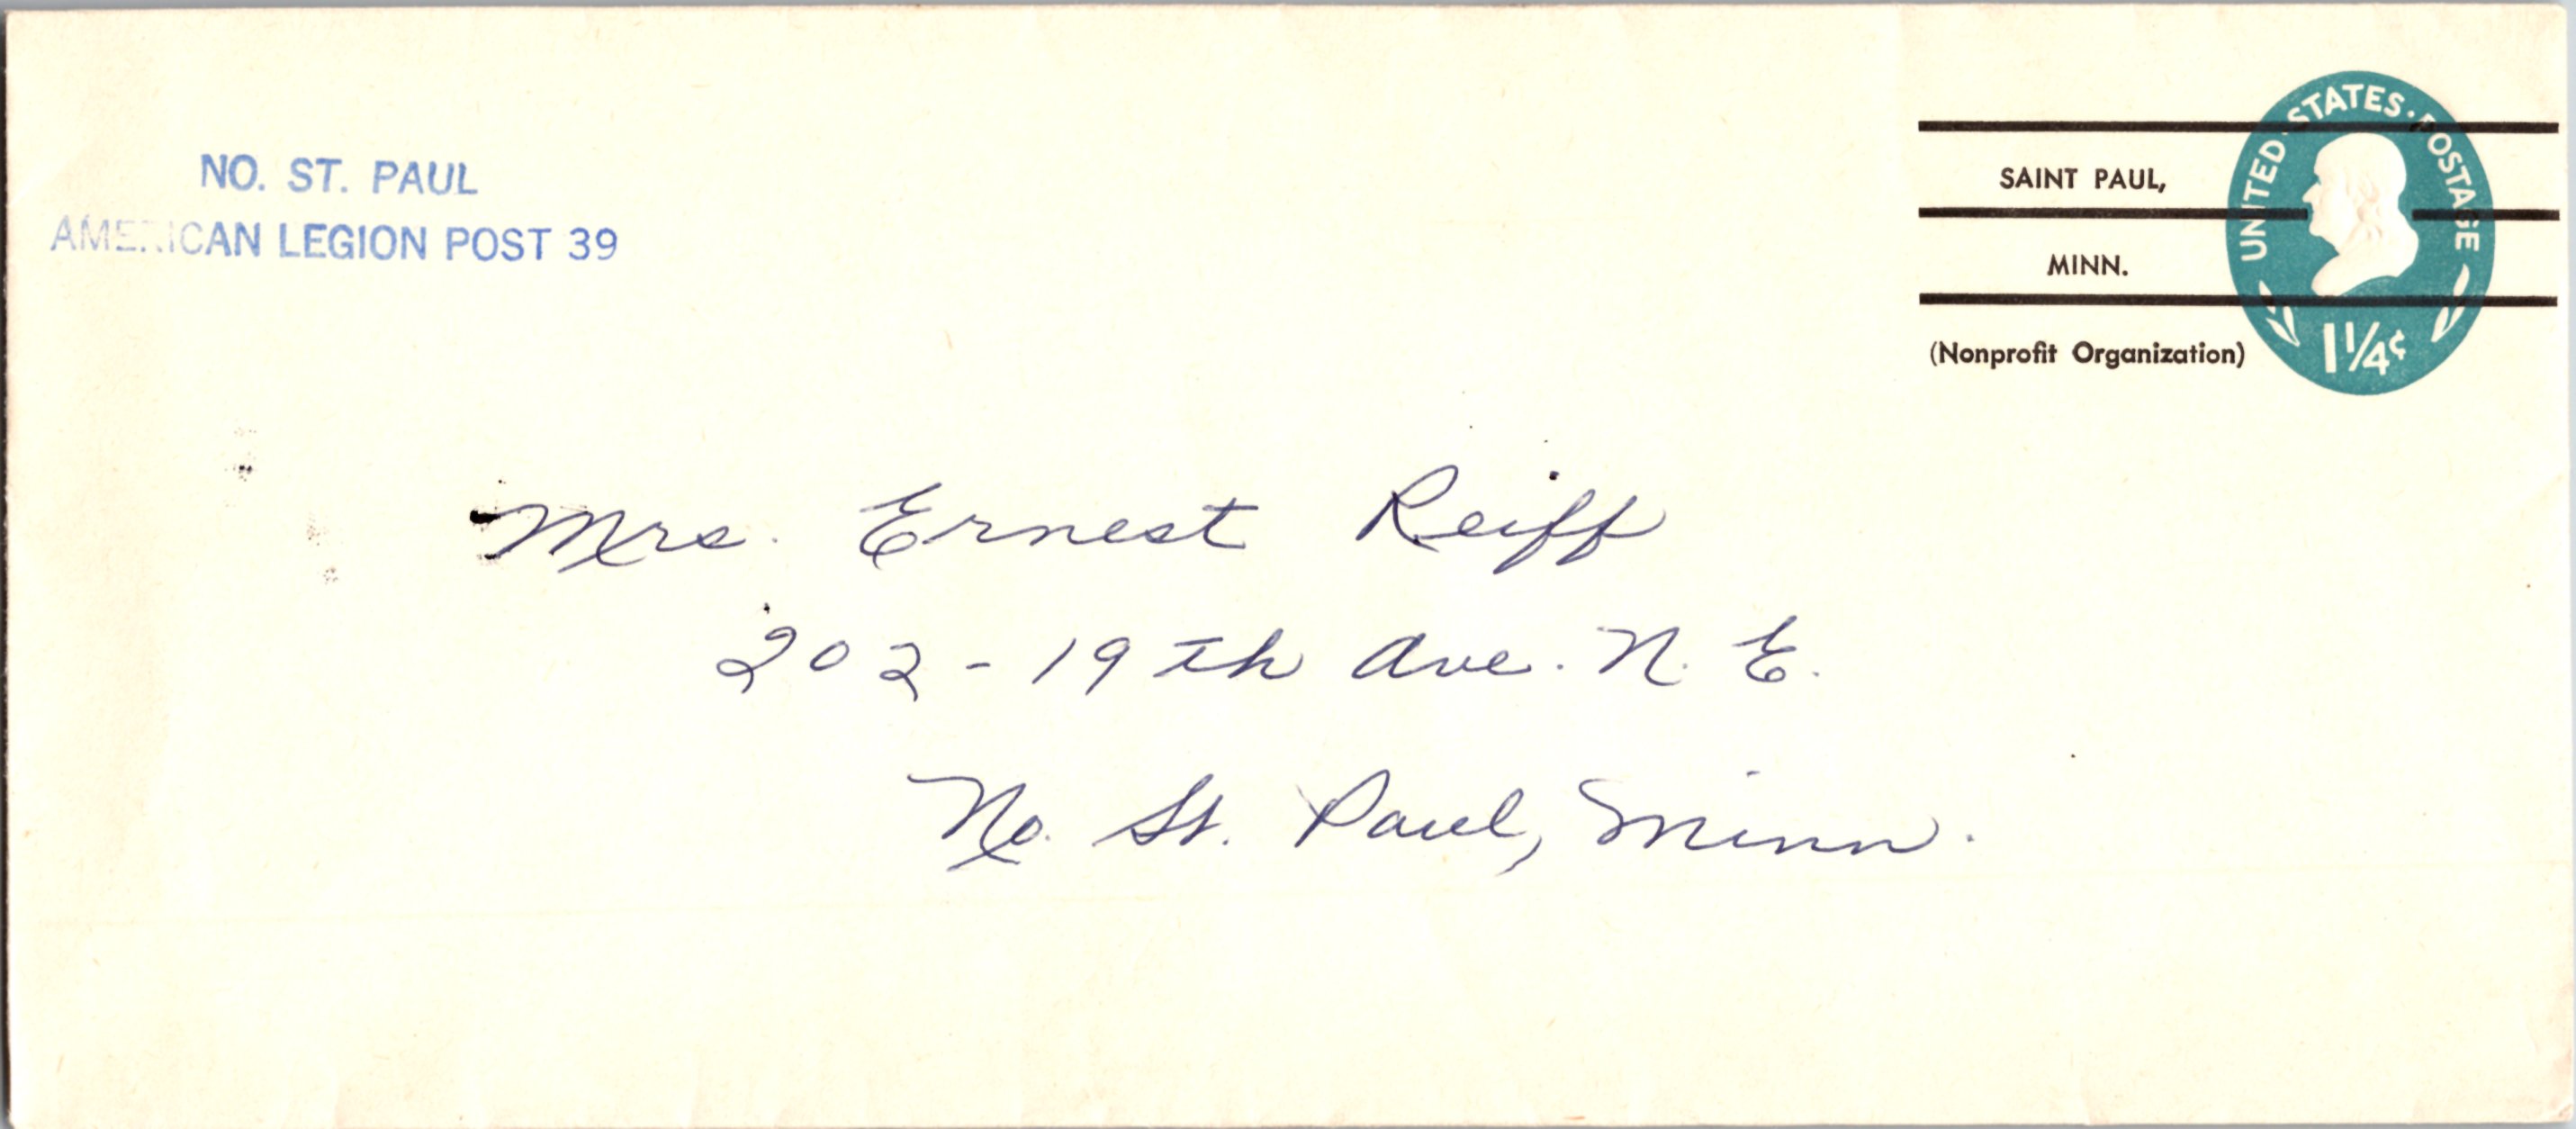 NO. ST. PAUL
AMERICAN LEGION POST 39
SAINT PAUL,
MINN.
(Nonprofit Organization)
UNITED STATES · POSTAGE
1 1/4¢
Mrs. Ernest Reiff
202 - 19th Ave. N. E.
No. St. Paul, Minn.